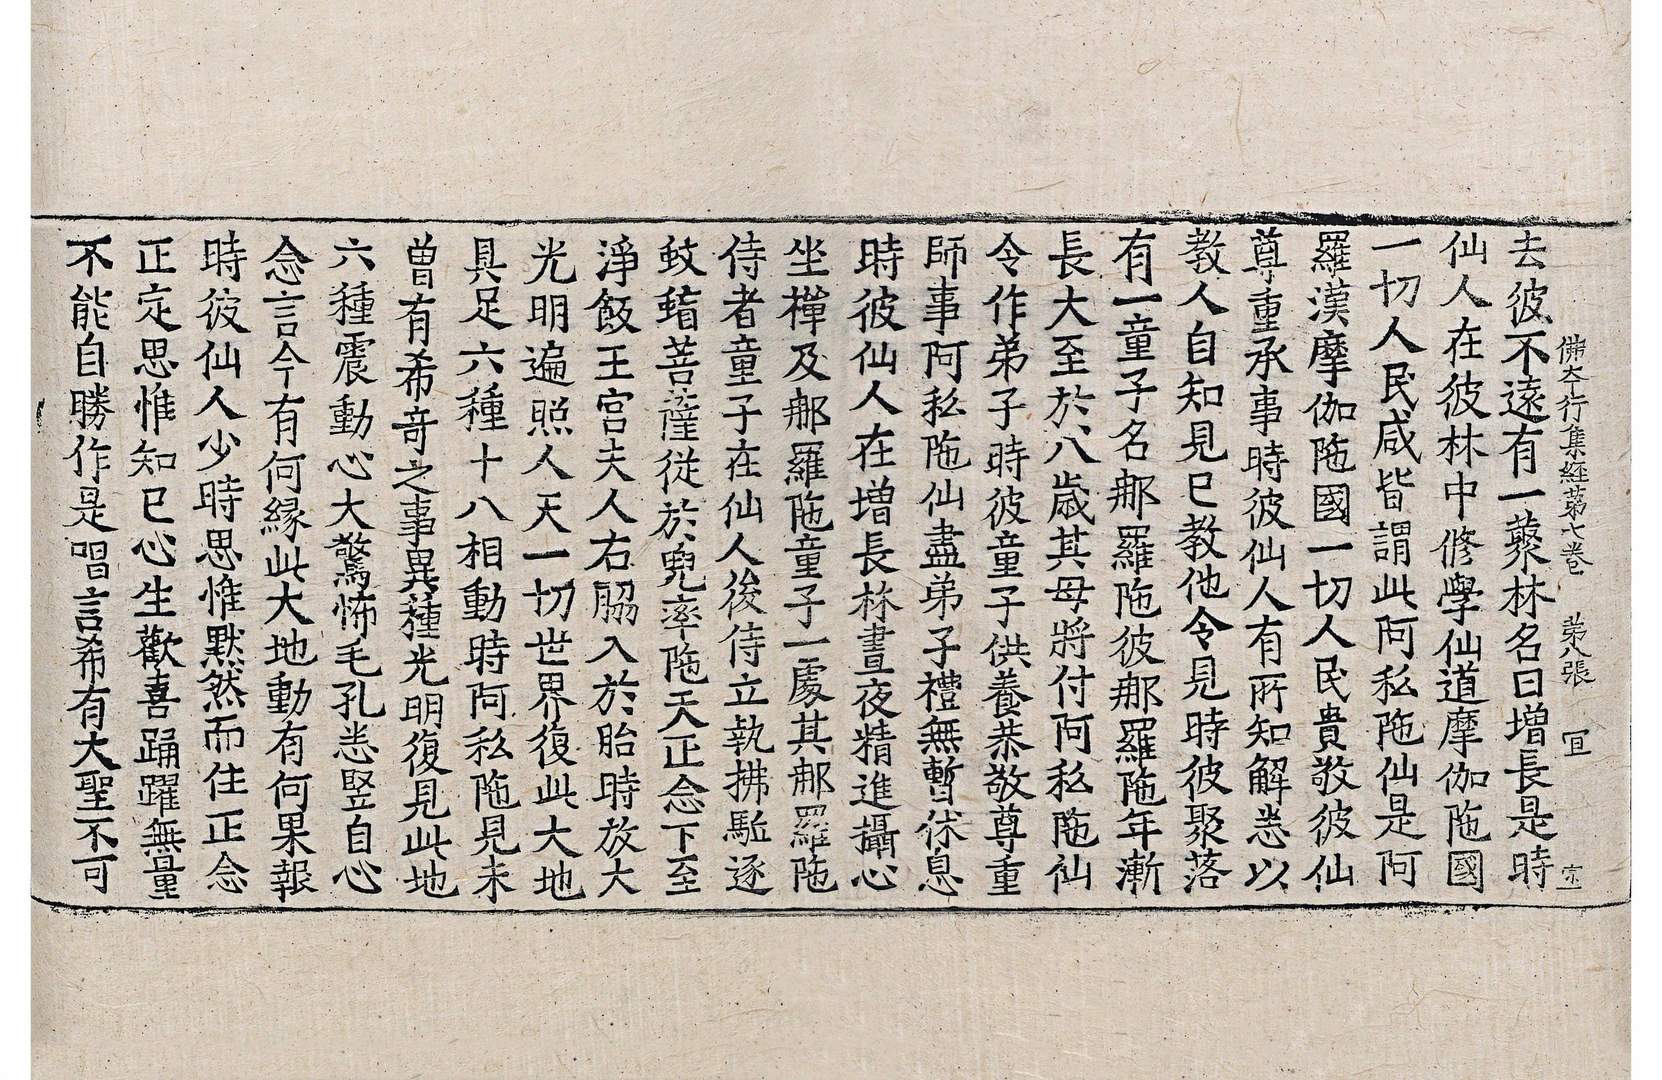 佛本行集經第七卷 第八張 宜 宗一
去彼不遠有一藂林名曰增長是時
仙人在彼林中修學仙道摩伽陁國
一切人民咸皆謂此阿私陁仙是阿
羅漢摩伽陁國一切人民貴敬彼仙
尊重承事時彼仙人有所知解悉以
教人自知見已教他令見時彼聚落
有一童子名那羅陁彼那羅陁年漸
長大至於八歲其母將付阿私陁仙
令作弟子時彼童子供養恭敬尊重
師事阿私陁仙盡弟子禮無暫休息
時彼仙人在增長林晝夜精進攝心
坐禪及那羅陁童子一處其那羅陁
侍者童子在仙人後侍立執拂駈逐
蚊䖟菩薩從於兜率陁天正念下至
淨飯王宮夫人右脇入於胎時放大
光明遍照人天一切世界復此大地
具足六種十八相動時阿私陁見未
曾有希奇之事異種光明復見此地
六種震動心大驚怖毛孔悉竪自心
念言今有何緣此大地動有何果報
時彼仙人少時思惟默然而住正念
正定思惟知已心生歡喜踊躍無量
不能自勝作是唱言希有大聖不可